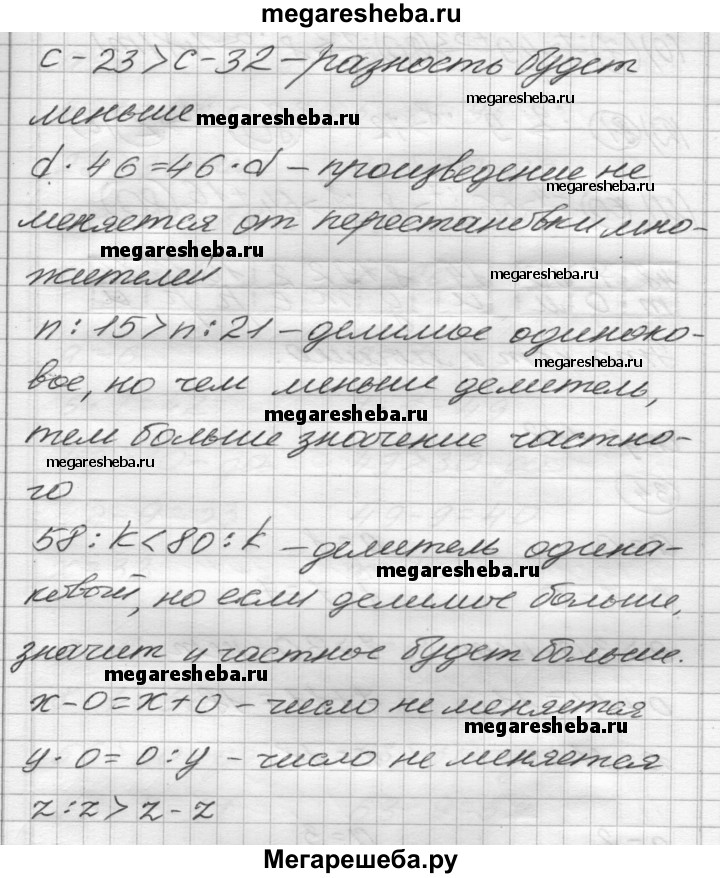 megaresheba.ru
c - 23 > c - 32 – разность будет
megaresheba.ru
меньше megaresheba.ru
d · 46 = 46 · d – произведение не
megaresheba.ru
меняется от перестановки мно-
megaresheba.ru
жителей megaresheba.ru
n : 15 > n : 21 – делимое одиноко-
megaresheba.ru
вое, но чем меньши делитель,
megaresheba.ru
тем больше значение частно-
megaresheba.ru
го
58 : k < 80 : k – делитель одина-
megaresheba.ru
ковый, но если делимое больше,
значит и частное будет больше.
megaresheba.ru
x - 0 = x + 0 – число не меняется
megaresheba.ru
y · 0 = 0 : y – число не меняется
z : z > z - z
Мегарешеба.ру